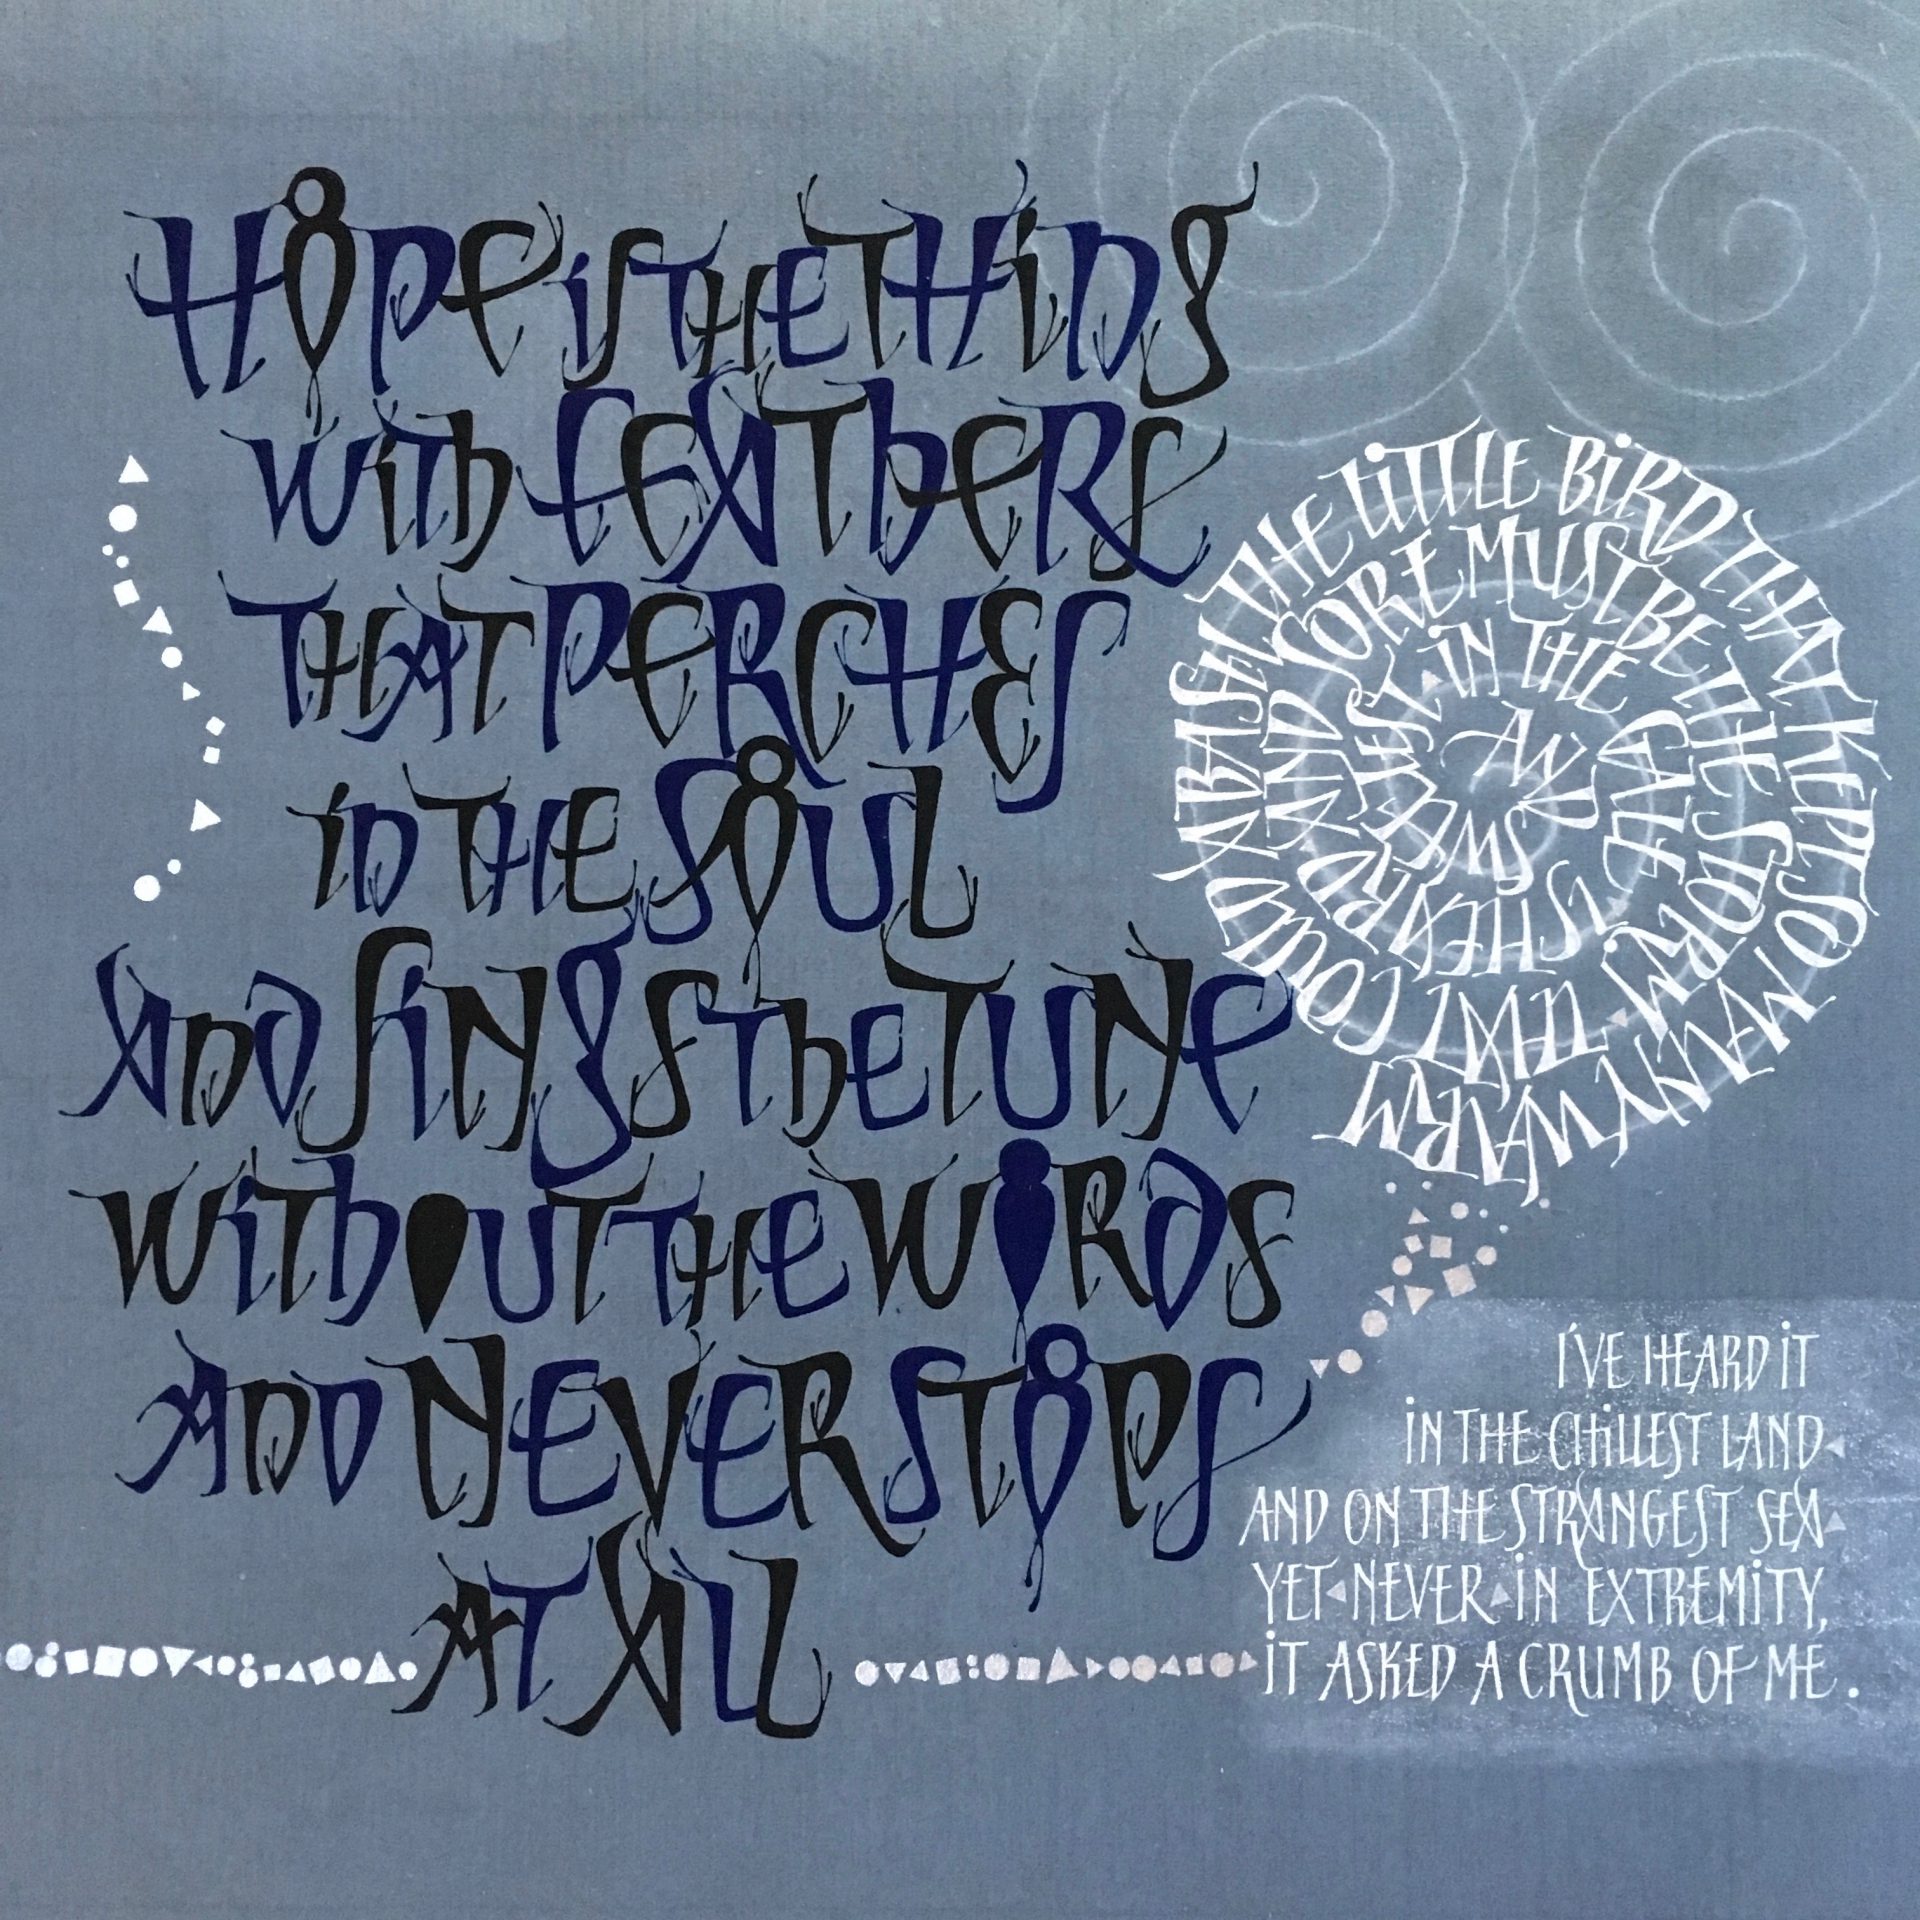 HOPE iS THE THiNG
WiTh FEATheRS
THAT PERCHES
iN THE SOUL
AND SiNGS ThE TUNE
WiThOUT THE WORdS
AND NEVER STOPS
AT ALL
AND SWEETEST iN THE GALE iS HEARD AND SORE MUST BE THE STORM THAT COULD ABASH THE LiTTLE BiRD THAT KEPT SO MANY WARM
I'VE HEARD iT
iN THE CHiLLEST LAND
AND ON THE STRANGEST SEA
YET NEVER iN EXTREMiTY,
iT ASKED A CRUMB OF ME.